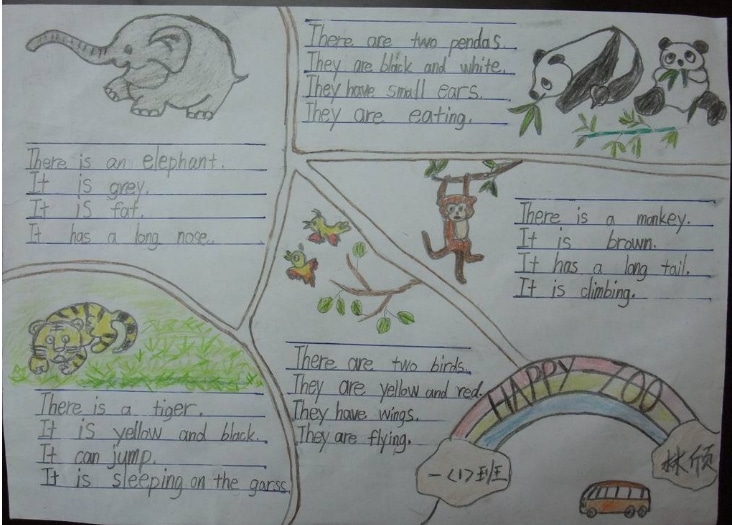 There is an elephant.
It is grey.
It is fat.
It has a long nose.
There are two pendas.
They are black and white.
They have small ears.
They are eating.
There is a monkey.
It is brown.
It has a long tail.
It is climbing.
There is a tiger.
It is yellow and black.
It can jump.
It is sleeping on the garss.
There are two birds.
They are yellow and red.
They have wings.
They are flying.
HAPPY ZOO
一〈1〉班
林颀